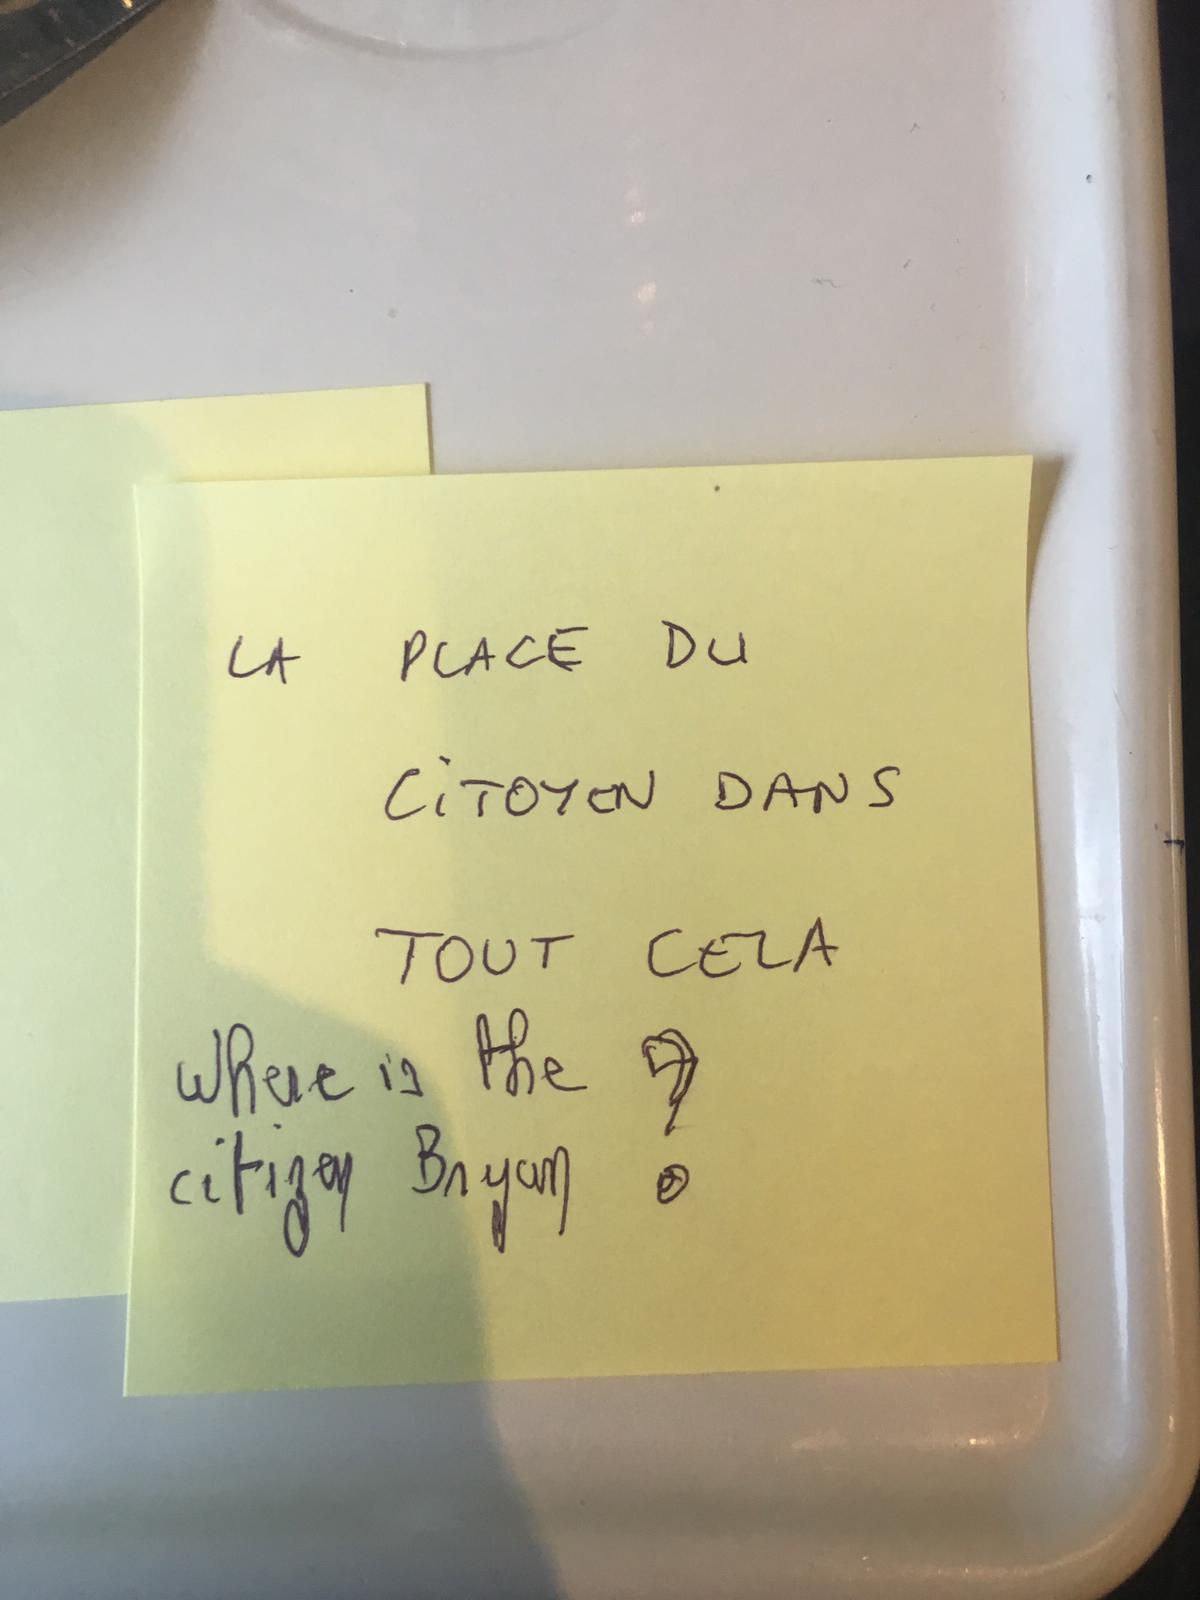 LA PLACE DU
CiTOYEN DANS
TOUT CELA
Where is the ?
citizen Bryan